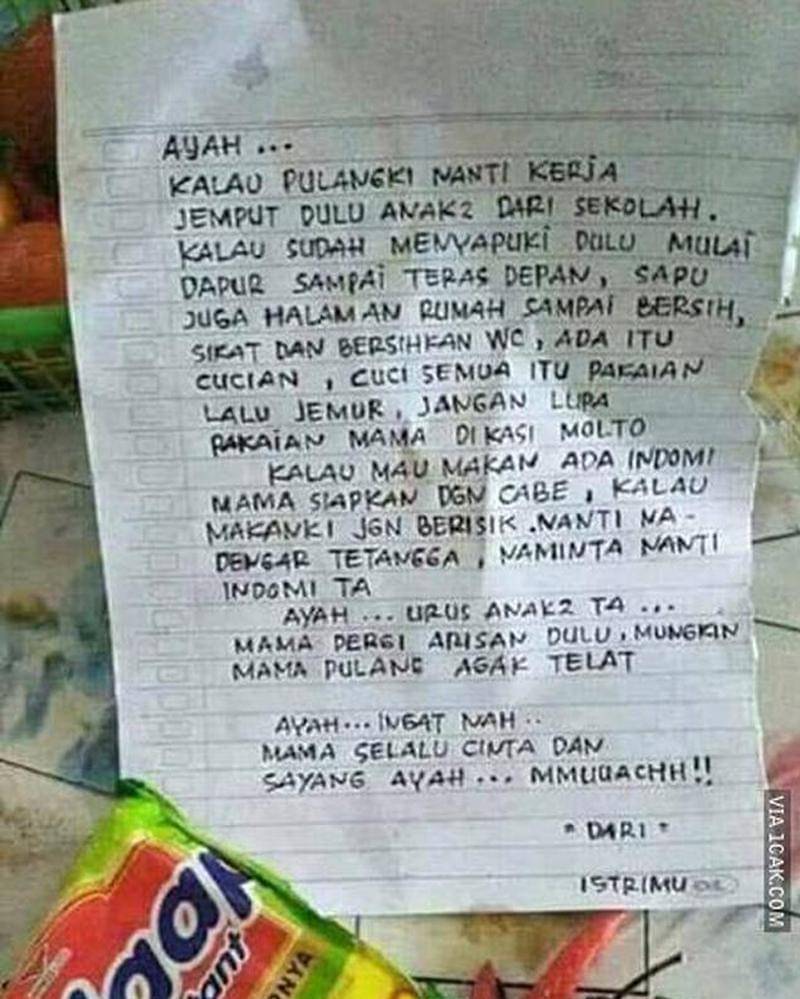 AYAH ...
KALAU PULANGKI NANTI KERJA
JEMPUT DULU ANAK2 DARI SEKOLAH.
KALAU SUDAH MENYAPUKI DULU MULAI
DAPUR SAMPAI TERAS DEPAN, SAPU
JUGA HALAMAN RUMAH SAMPAI BERSIH,
SIKAT DAN BERSIHKAN WC, ADA ITU
CUCIAN, CUCI SEMUA ITU PAKAIAN
LALU JEMUR, JANGAN LUPA
PAKAIAN MAMA DI KASI MOLTO
KALAU MAU MAKAN ADA INDOMI
MAMA SIAPKAN DGN CABE, KALAU
MAKANKI JGN BERISIK. NANTI NA-
DENGAR TETANGGA, NAMINTA NANTI
INDOMI TA
AYAH ... URUS ANAK2 TA ...
MAMA PERGI ARISAN DULU, MUNGKIN
MAMA PULANG AGAK TELAT
AYAH ... INGAT NAH ..
MAMA SELALU CINTA DAN
SAYANG AYAH ... MMUUACHH!!
" DARI "
ISTRIMU
VIA 1CAK.COM